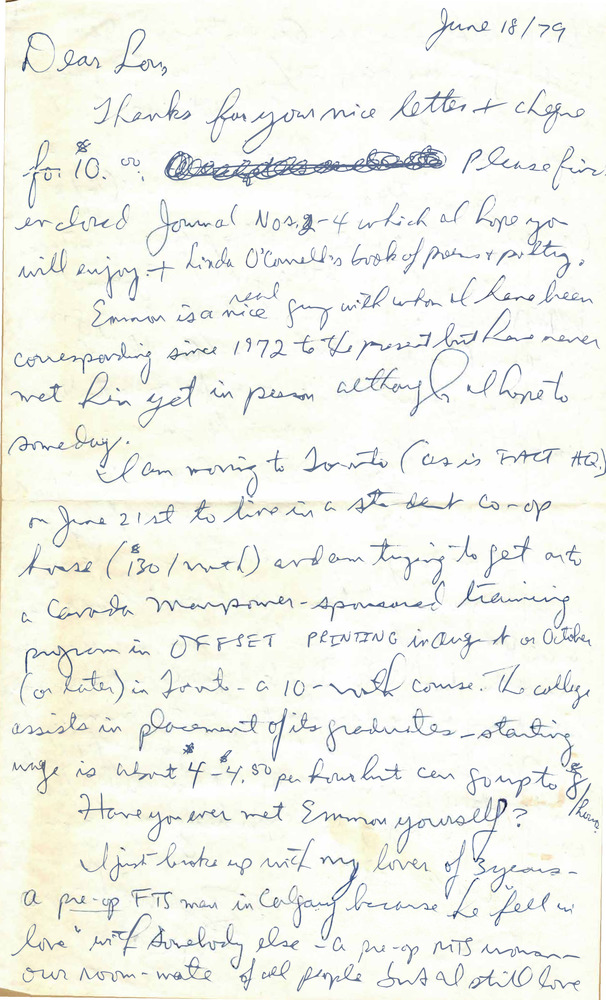 June 18/79
Dear Lou,
Thanks for your nice letter + cheque
for $10.00. Please find
enclosed Journal Nos. 2-4 which I hope you
will enjoy + Linda O'Connell's book of poems + poetry.
Emmon is a real nice guy with whom I have been
corresponding since 1972 to the present but have never
met him yet in person although I hope to
someday.
I am moving to Toronto (as is FACT HQ.)
on June 21st to live in a student co-op
house ($130/month) and am trying to get onto
a Canada Manpower-sponsored training
program in OFFSET PRINTING in August or October
(or later) in Toronto - a 10-month course. The college
assists in placement of its graduates - starting
wage is about $4-$4.50 per hour but can go up to $8/hour.
Have you ever met Emmon yourself?
I just broke up with my lover of 3 years -
a pre-op FTS man in Calgary because he "fell in
love" with somebody else - a pre-op MTS woman -
our room-mate of all people but I still love